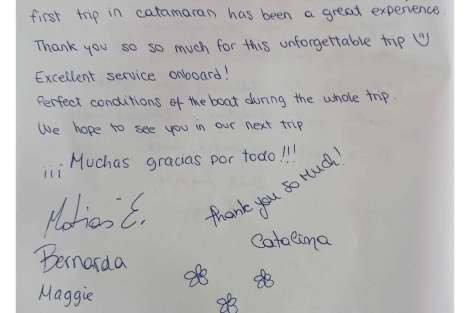 first trip in catamaran has been a great experience.
Thank you so so much for this unforgettable trip
Excellent service onboard!
Perfect conditions of the boat during the whole trip.
We hope to see you in our next trip
¡¡¡ Muchas gracias por todo!!!
Thank you so Much!
Matias E.
Catalina
Bernarda
Maggie